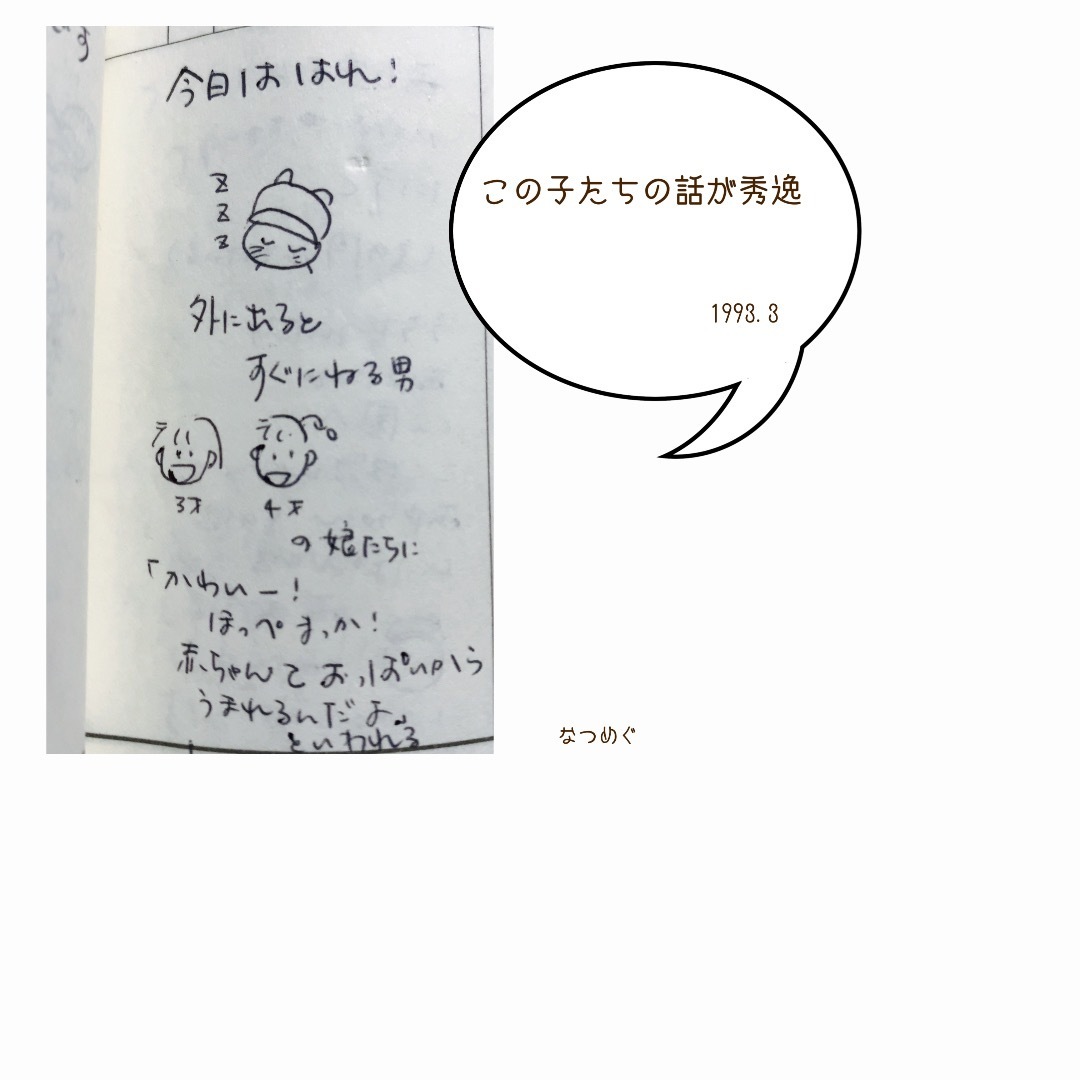 す
今日ははれ!
z
z
z
外に出ると
すぐにねる男
3才 4才
の娘たちに
「かわいー!
ほっぺまっか!
赤ちゃんておっぱいから
うまれるんだよ。
といわれる
この子たちの話が秀逸
1993.3
なつめぐ